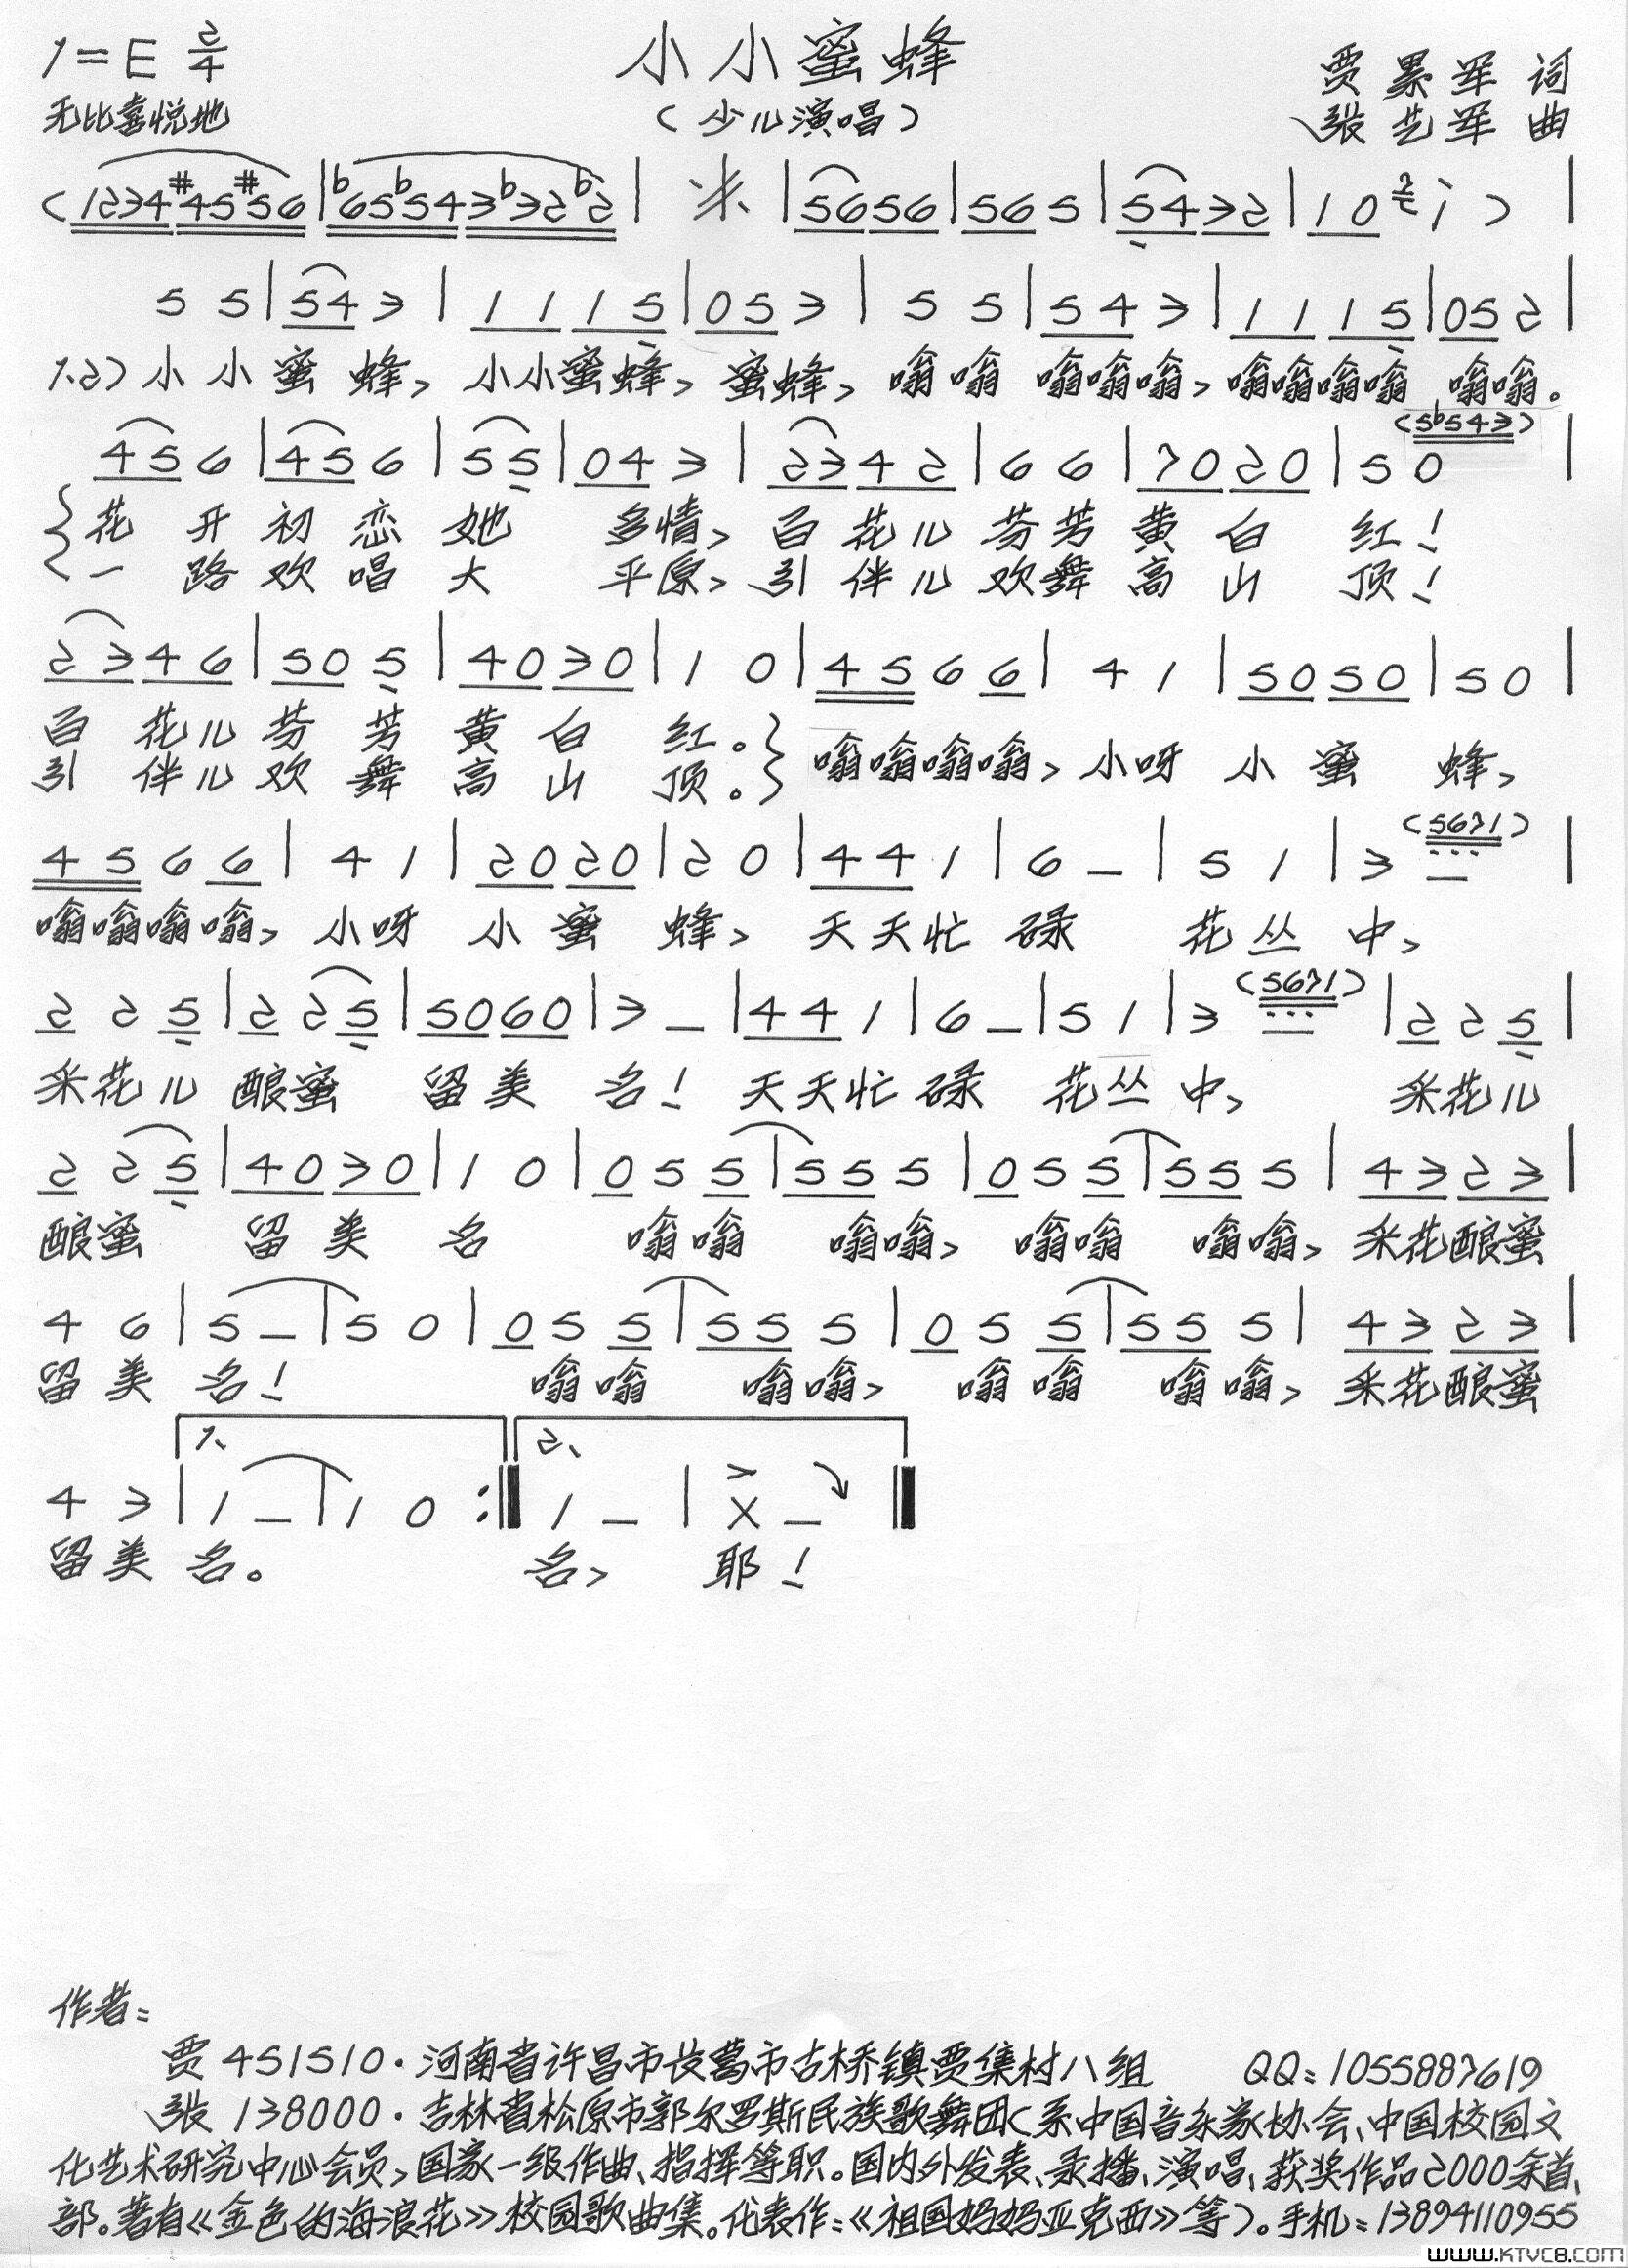 1=E 2/4
小小蜜蜂
无比喜悦地
(少儿演唱)
贾累军 词
张艺军 曲
(1234#45#56|b65b543b32b2| 米 |5656|565|5432|10 2/7 i)|
5 5|54 3|1 1 1 5|05 3|5 5|54 3|1 1 1 5|05 2|
1.2)小小蜜蜂,小小蜜蜂,蜜蜂,嗡嗡 嗡嗡嗡,嗡嗡嗡嗡 嗡嗡。
(5b543)
45 6|45 6|5 5|04 3|23 42|6 6|70 20|5 0|
花开初恋她 多情,百花儿芬芳黄白 红!
一路欢唱大 平原,引伴儿欢舞高山 顶!
23 46|50 5|40 30|1 0|45 6 6|4 1|50 50|5 0|
百花儿芬芳黄白 红。
嗡嗡嗡嗡,小呀小蜜 蜂,
引伴儿欢舞高山 顶。
(5671)
45 6 6|4 1|20 20|2 0|44 1|6 –|5 1|3 –|
嗡嗡嗡嗡,小呀小蜜 蜂,天天忙碌 花丛中,
(5671)
2 2 5|2 2 5|50 60|3 –|44 1|6 –|5 1|3 –|2 2 5|
采花儿 酿蜜 留美 名!天天忙碌 花丛中, 采花儿
2 2 5|40 30|1 0|0 5 5|55 5|0 5 5|55 5|43 23|
酿蜜 留美 名 嗡嗡 嗡嗡,嗡嗡 嗡嗡,采花酿蜜
4 6|5 –|5 0|0 5 5|55 5|0 5 5|55 5|43 23|
留美 名! 嗡嗡 嗡嗡,嗡嗡 嗡嗡,采花酿蜜
1、 2、
4 3|1 –|1 0:‖1 –|X –‖
留美 名。 名, 耶!
作者:
贾451510·河南省许昌市长葛市古桥镇贾集村八组 QQ:1055887619
张138000·吉林省松原市郭尔罗斯民族歌舞团(系中国音乐家协会、中国校园文
化艺术研究中心会员,国家一级作曲、指挥等职。国内外发表、录播、演唱、获奖作品2000余首、
部。著有《金色的海浪花》校园歌曲集。代表作:《祖国妈妈亚克西》等)。手机:13894110955
WWW.KTVC8.COM